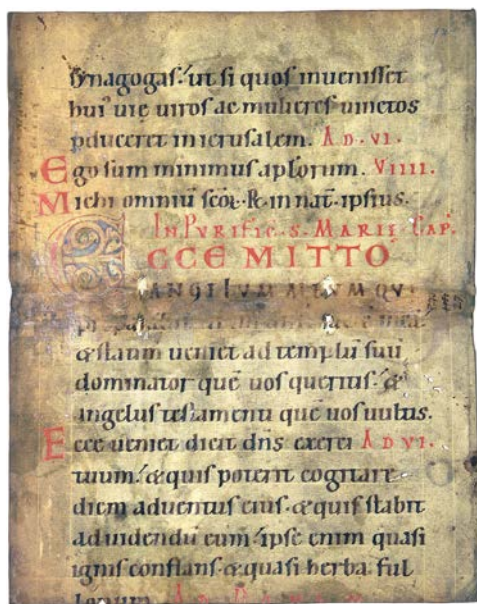 synagogas: ut si quos inuenisset
hui' uie uiros ac mulieres uinctos
pduceret in ierusalem. AD. VI.
Ego sum minimus aplorum. VIIII.
Michi omniū scōꝝ. R. in nat. ipsius.
IN PVRIFIC. S. MARIE CAP.
ECCE MITTO
ANGELVM MEVM QVI
& statim ueniet ad templū suū
dominator quē uos queritis. &
angelus testamenti quē uos uultis.
Ecce ueniet dicit dn̄s exerci AD VI.
tuum: & quis poterit cogitare
diem aduentus eius. & quis stabit
ad uidendū eum: ipse enim quasi
ignis conflans. & quasi herba ful
lonum